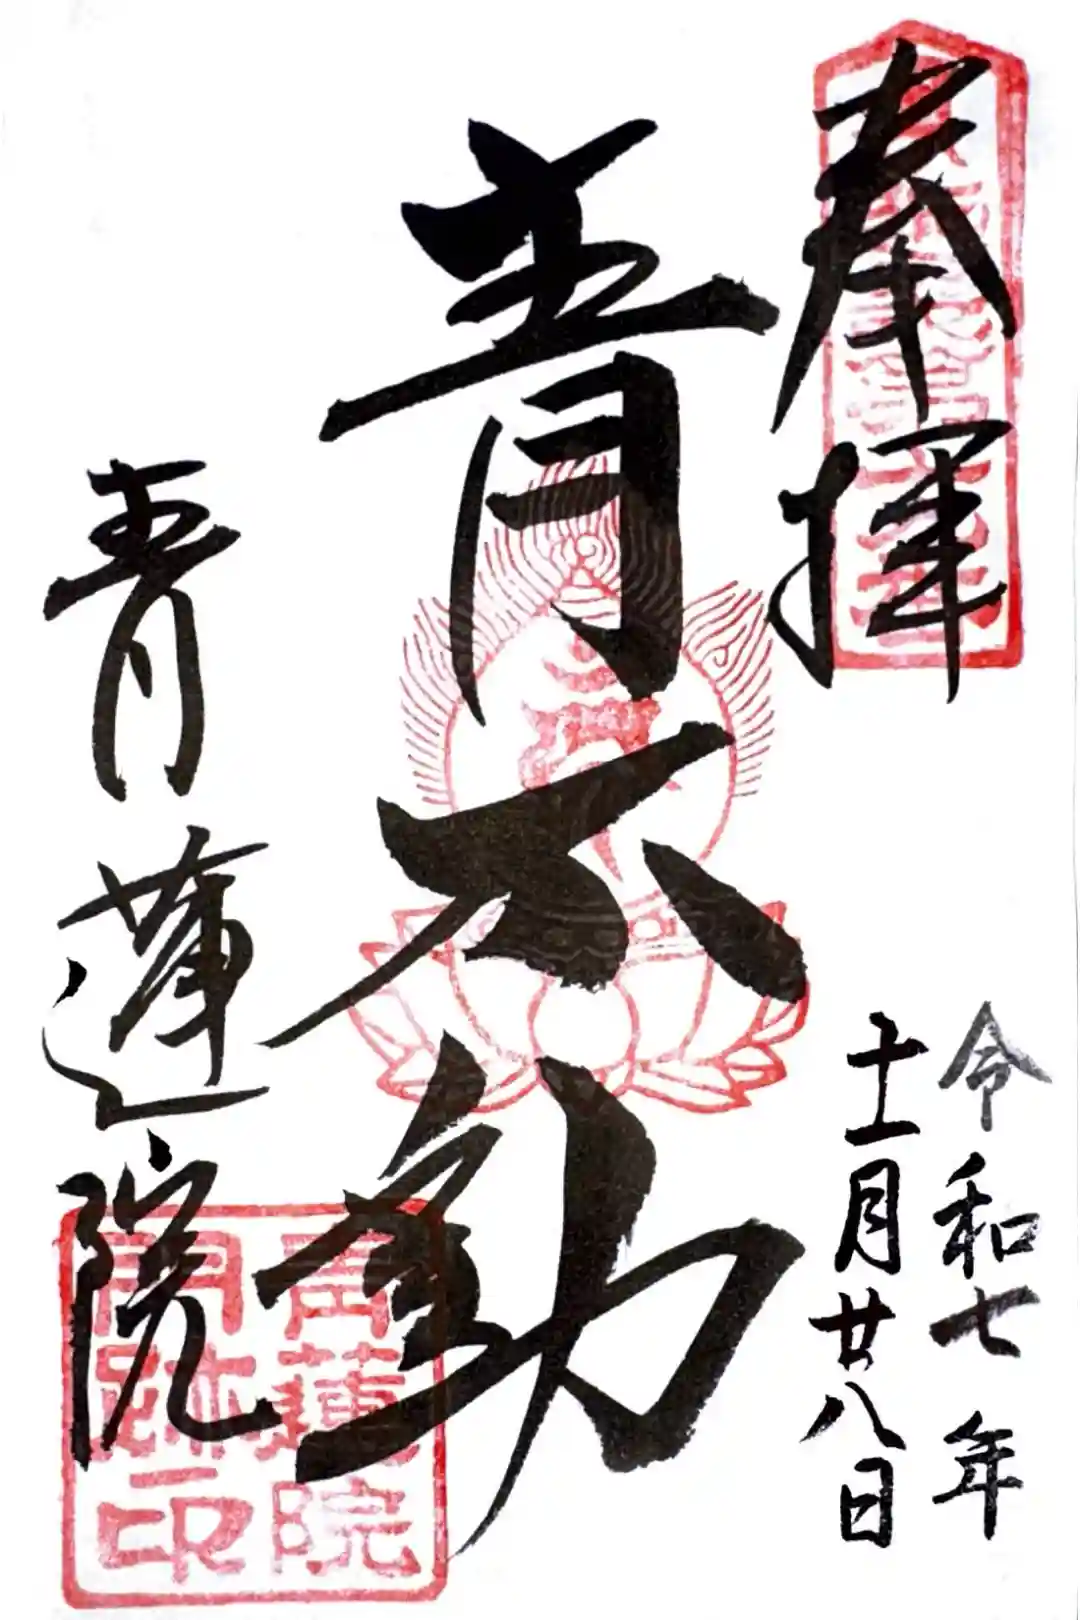 奉拝
令和七年
十二月廿八日
青不動
青蓮院
青蓮院
門跡印